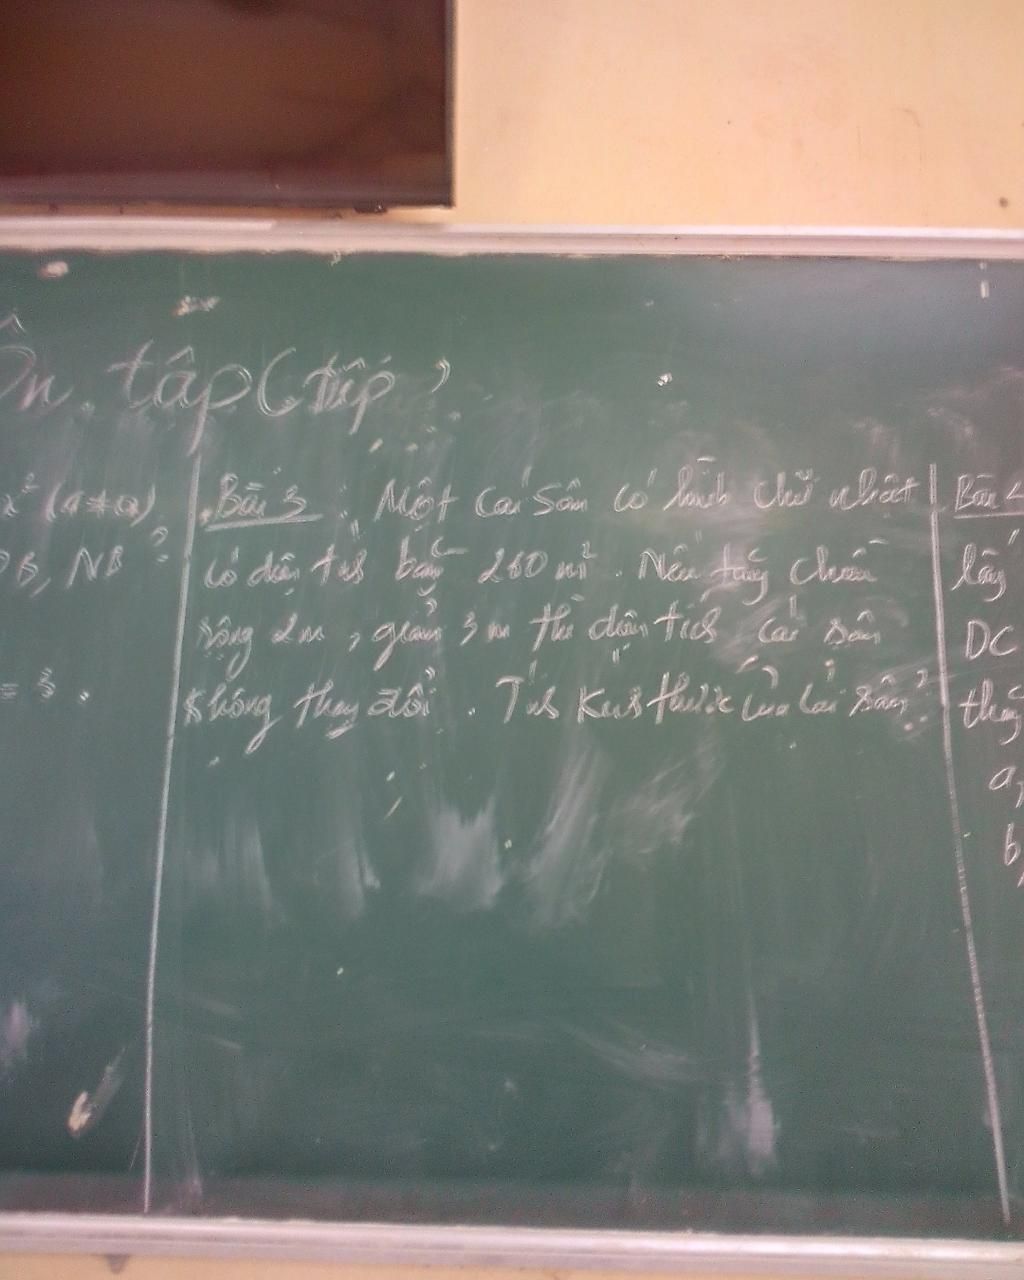 Ôn tập (tiếp)
x² (a≠0)
OB, NB ?
= 3.
Bài 3: Một cái sân có hình chữ nhật
có diện tích bằng 260 m². Nếu tăng chiều
rộng 2m, giảm 3m thì diện tích cái sân
không thay đổi. Tính kích thước của cái sân?
Bài 4
lấy
DC
thẳng
a,
b,